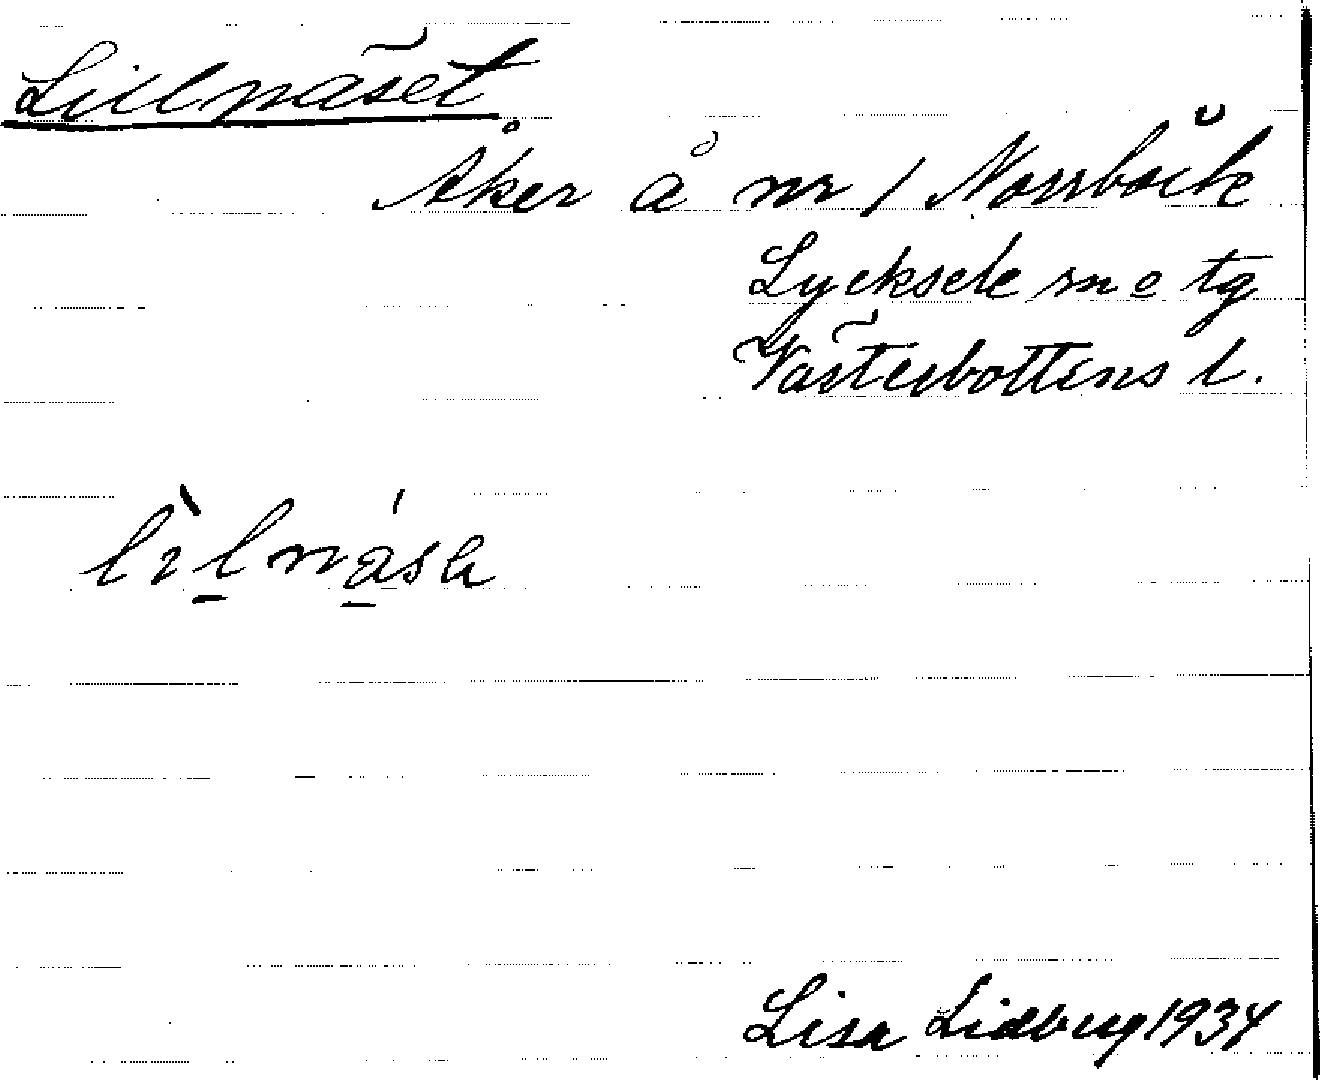 Lillnäset
Åker å nr 1 Norrbäck
Lycksele sn o tg
Västerbottens l.
Lisa Lidberg 1934